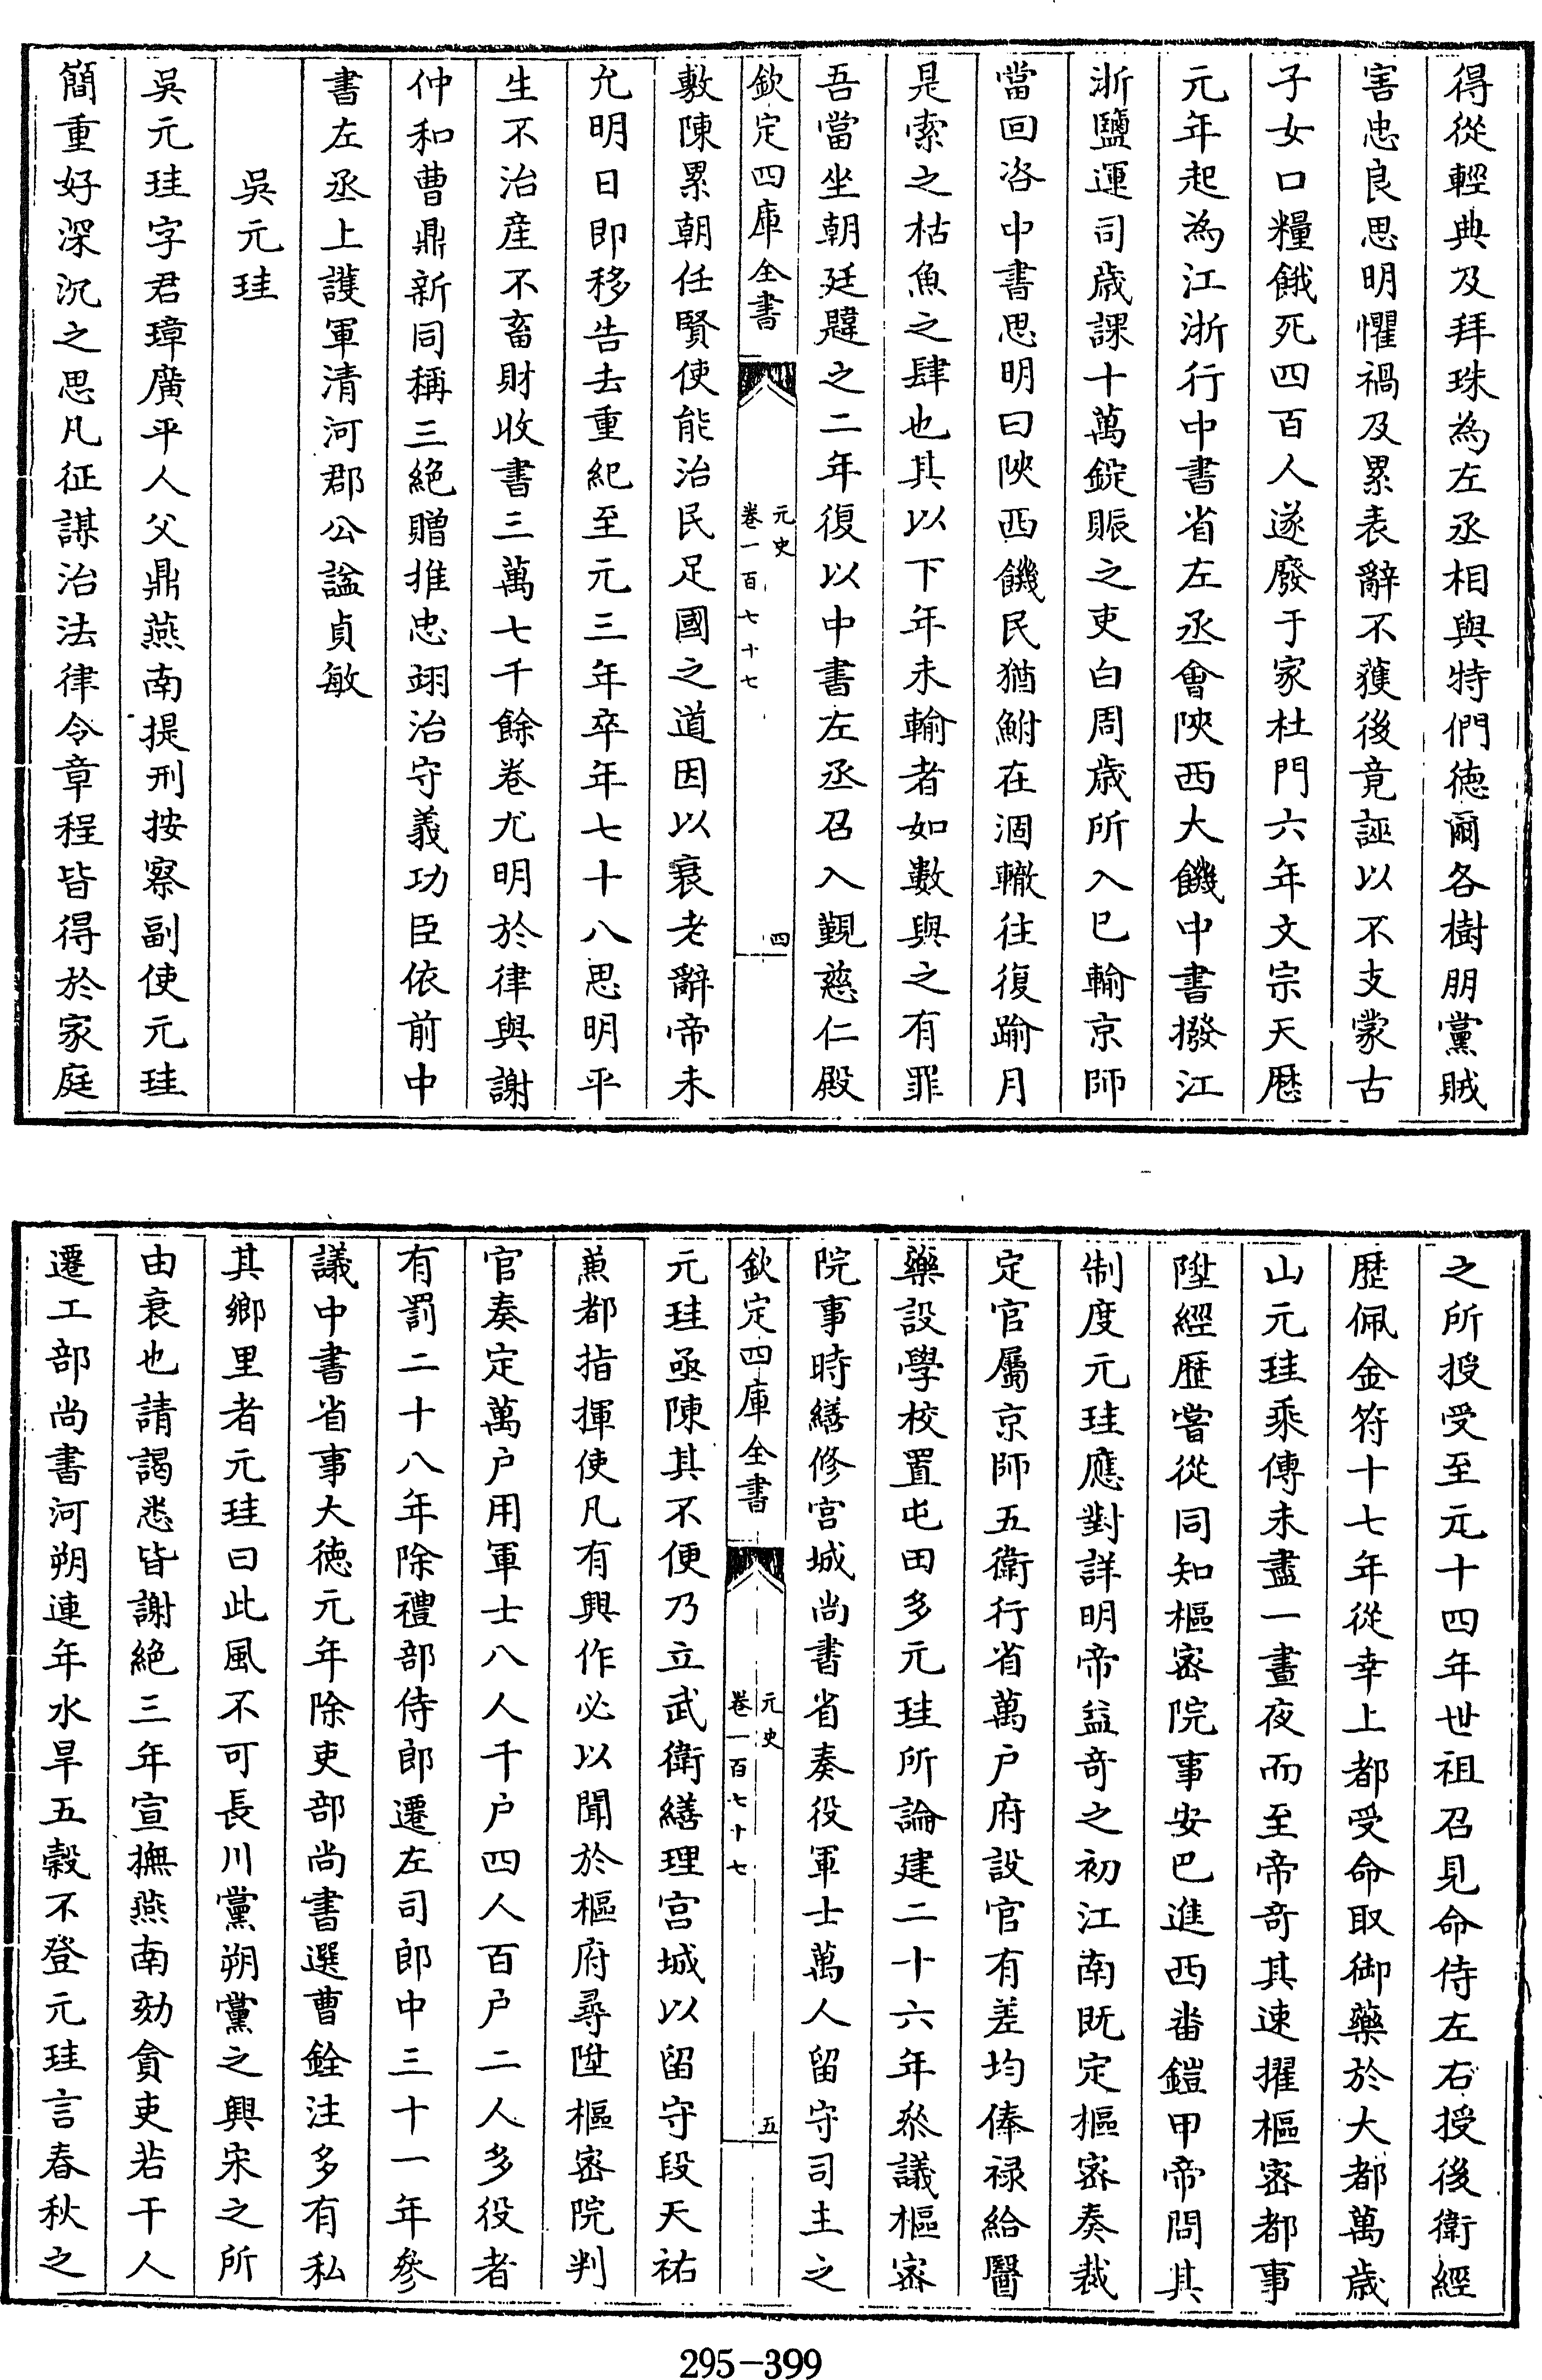 得從輕典及拜珠為左丞相與特們徳爾各樹朋黨賊
害忠良思明懼禍及累表辭不獲後竟誣以不支蒙古
子女口糧餓死四百人遂廢于家杜門六年文宗天厯
元年起為江浙行中書省左丞會陜西大饑中書撥江
浙鹽運司歳課十萬錠賑之吏白周歳所入已輸京師
當回咨中書思明曰陜西饑民猶鮒在涸轍往復踰月
是索之枯魚之肆也其以下年未輸者如數與之有罪
吾當坐朝廷韙之二年復以中書左丞召入覲慈仁殿
欽定四庫全書
元史
卷一百七十七
四
敷陳累朝任賢使能治民足國之道因以衰老辭帝未
允明日即移告去重紀至元三年卒年七十八思明平
生不治産不畜財收書三萬七千餘卷尤明於律與謝
仲和曹鼎新同稱三絶贈推忠翊治守義功臣依前中
書左丞上護軍清河郡公諡貞敏
吳元珪
吳元珪字君璋廣平人父鼎燕南提刑按察副使元珪
簡重好深沉之思凡征謀治法律令章程皆得於家庭
之所授受至元十四年世祖召見命侍左右授後衛經
歴佩金符十七年從幸上都受命取御藥於大都萬歳
山元珪乘傳未盡一晝夜而至帝奇其速擢樞密都事
陞經歴嘗從同知樞密院事安巴進西番鎧甲帝問其
制度元珪應對詳明帝益奇之初江南既定樞密奏裁
定官屬京師五衛行省萬户府設官有差均俸祿給醫
藥設學校置屯田多元珪所論建二十六年叅議樞密
院事時繕修宫城尚書省奏役軍士萬人留守司主之
欽定四庫全書
元史
卷一百七十七
五
元珪亟陳其不便乃立武衛繕理宫城以留守段天祐
兼都指揮使凡有興作必以聞於樞府尋陞樞密院判
官奏定萬户用軍士八人千户四人百户二人多役者
有罰二十八年除禮部侍郎遷左司郎中三十一年參
議中書省事大徳元年除吏部尚書選曹銓注多有私
其鄉里者元珪曰此風不可長川黨朔黨之興宋之所
由衰也請謁悉皆謝絶三年宣撫燕南劾貪吏若干人
遷工部尚書河朔連年水旱五穀不登元珪言春秋之
295-399